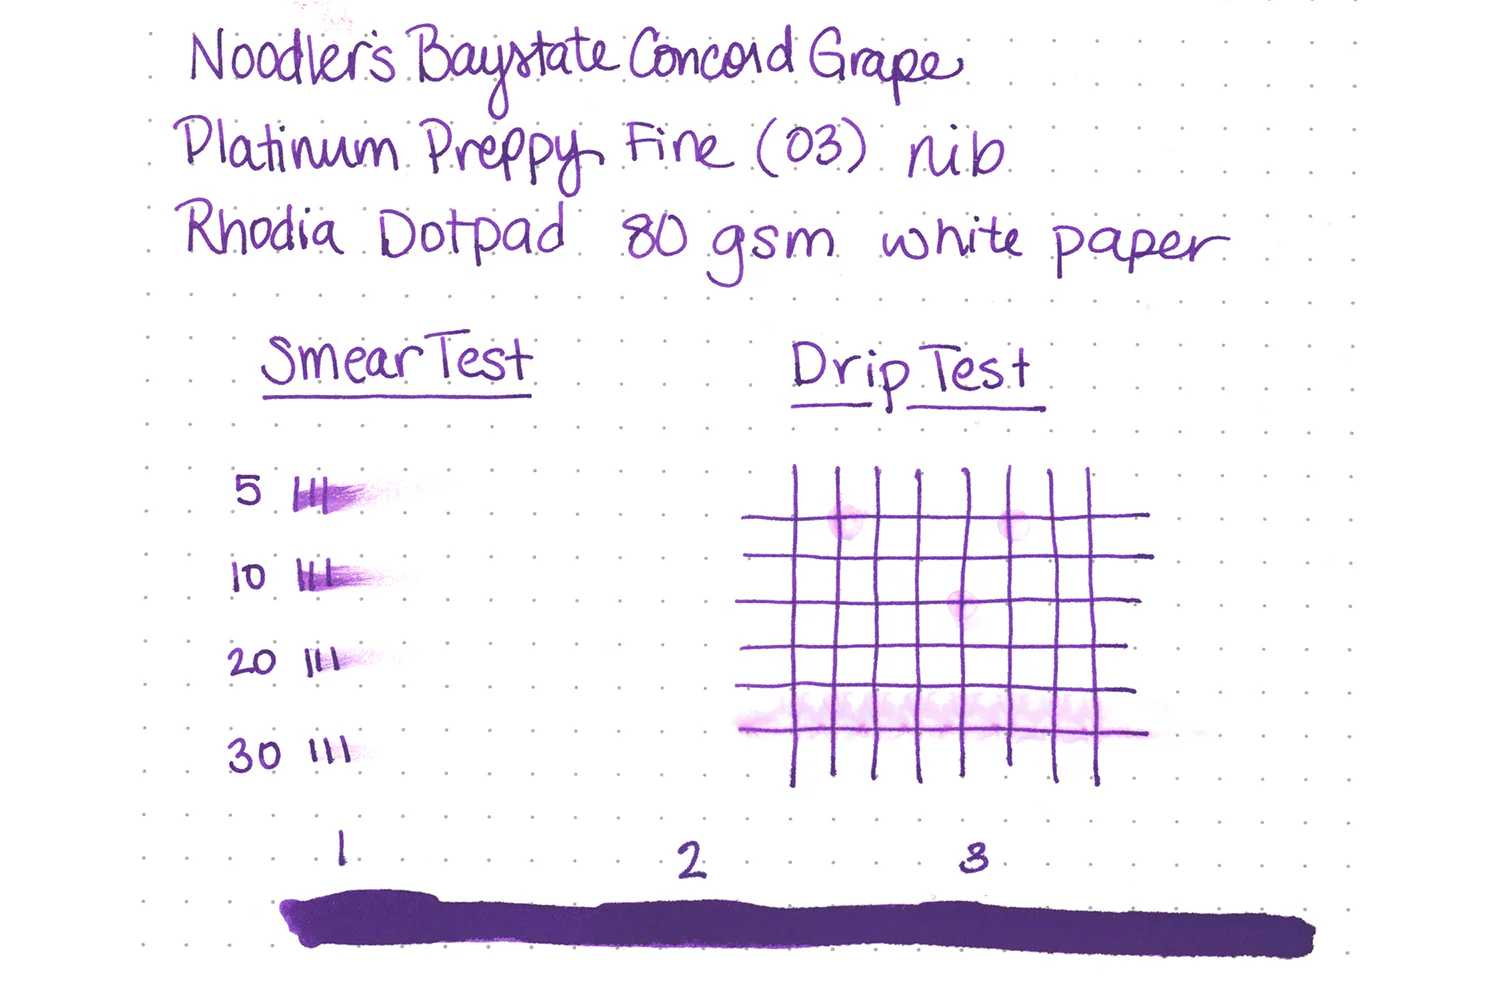 Noodler's Baystate Concord Grape
Platinum Preppy Fine (03) nib
Rhodia Dotpad 80 gsm white paper
Smear Test
Drip Test
5
10
20
30
1 2 3